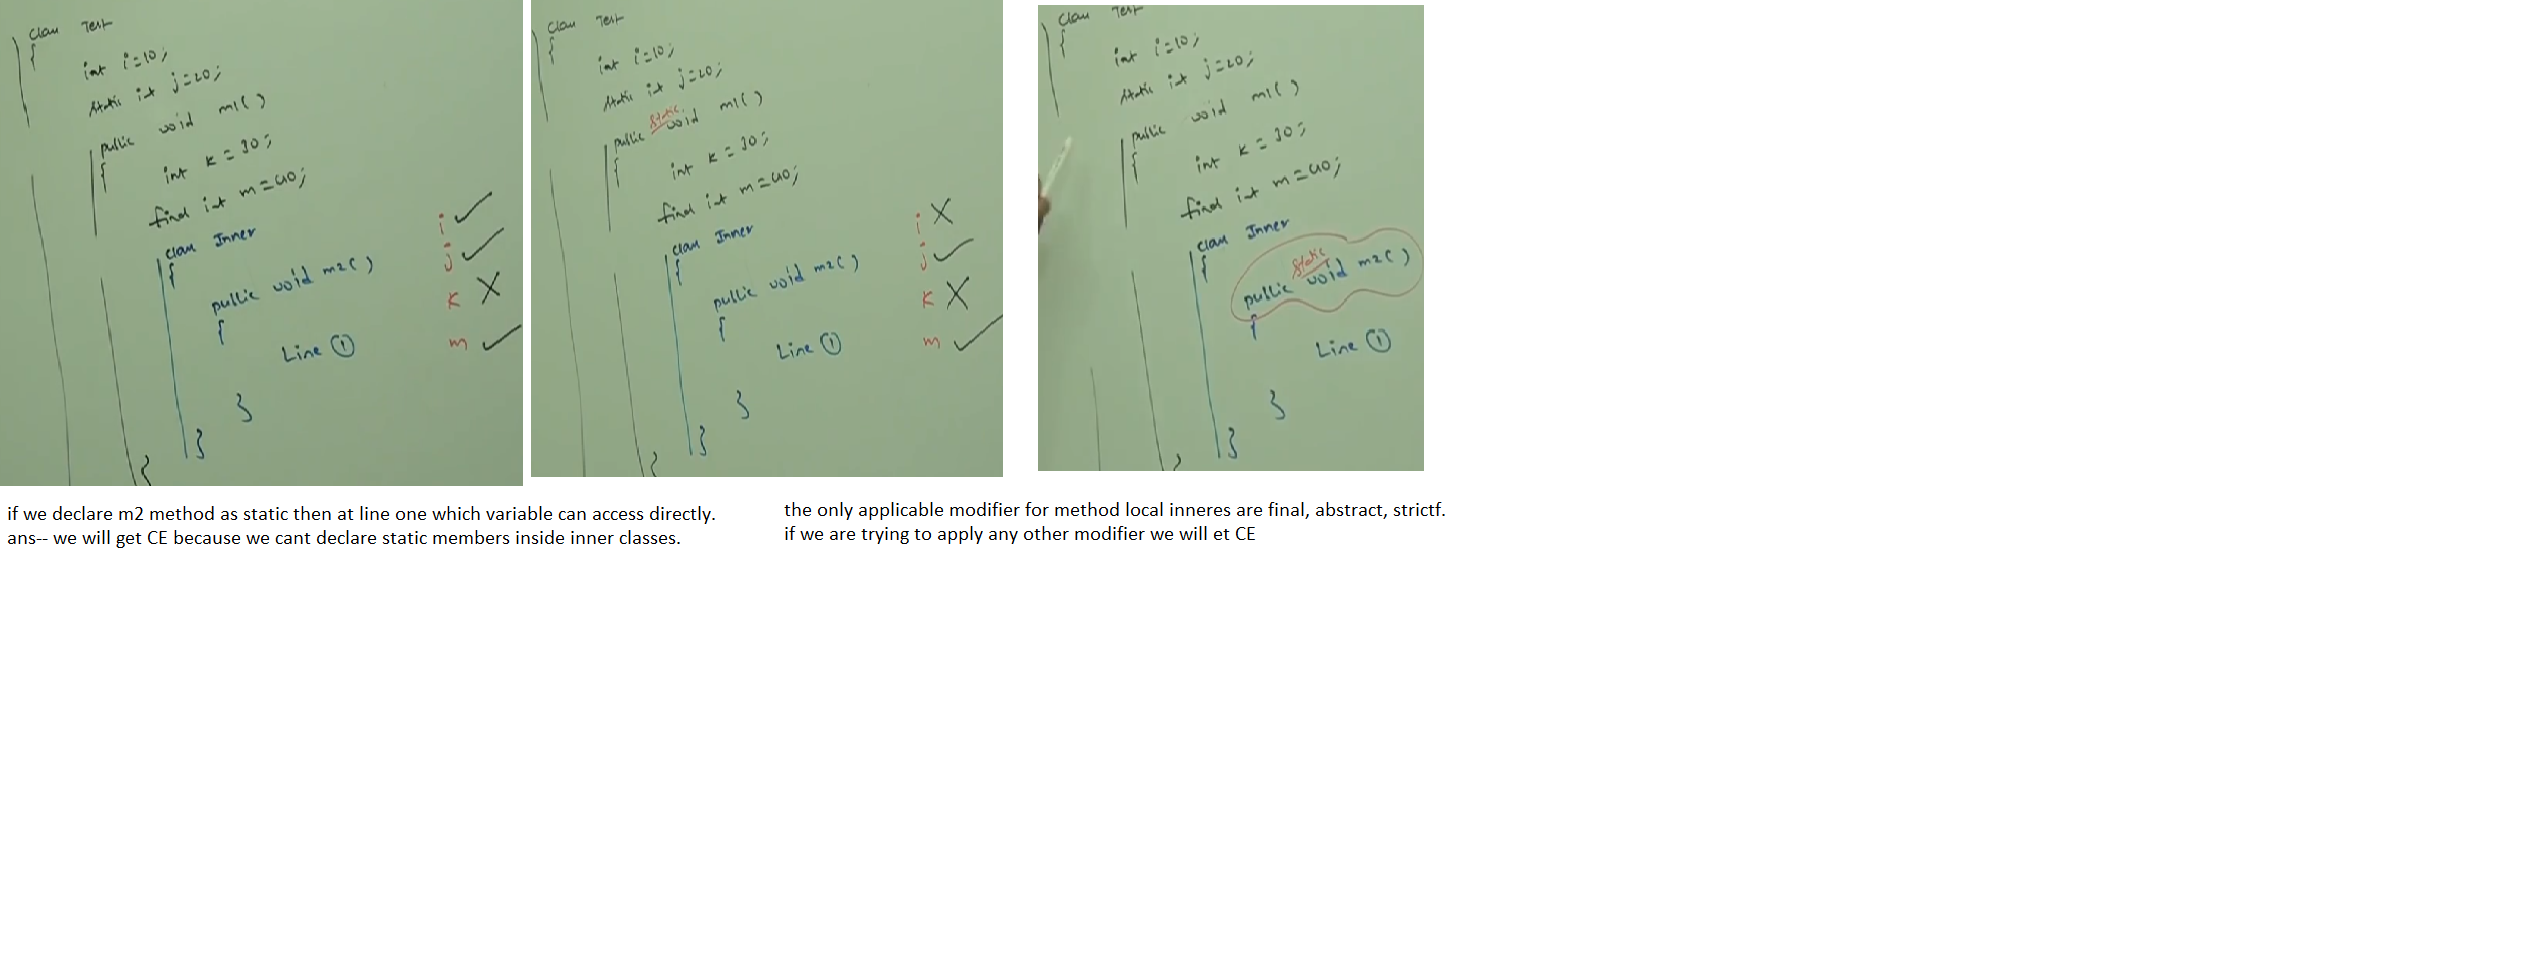 class Test
{
int i=10;
static int j=20;
public void m1()
{
int k=30;
final int m=40;
class Inner
{
public void m2()
{
Line ①
}
}
}
i ✓
j ✓
k X
m ✓
class Test
{
int i=10;
static int j=20;
public static void m1()
{
int k=30;
final int m=40;
class Inner
{
public void m2()
{
Line ①
}
}
}
i X
j ✓
k X
m ✓
class Test
{
int i=10;
static int j=20;
public void m1()
{
int k=30;
final int m=40;
class Inner
{
public static void m2()
{
Line ①
}
}
if we declare m2 method as static then at line one which variable can access directly.
ans-- we will get CE because we cant declare static members inside inner classes.
the only applicable modifier for method local inneres are final, abstract, strictf.
if we are trying to apply any other modifier we will et CE